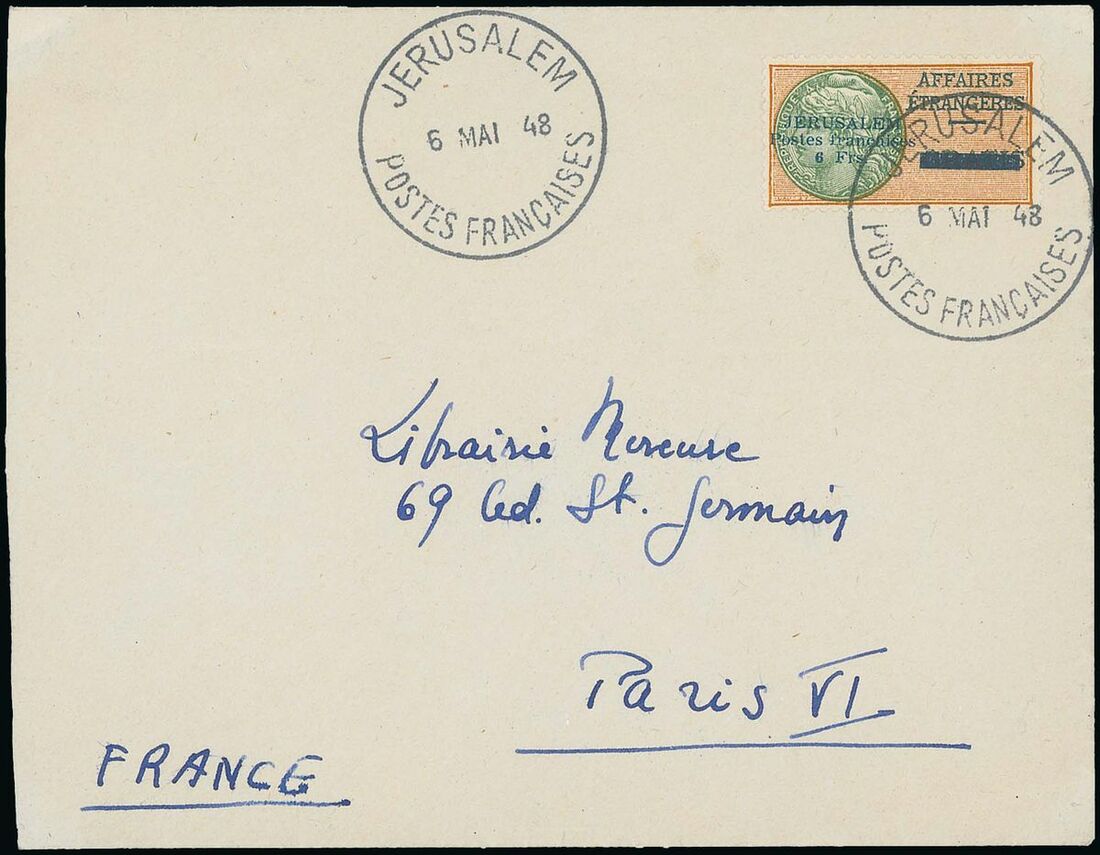 JERUSALEM
6 MAI 48
POSTES FRANÇAISES
AFFAIRES
ÉTRANGÈRES
JERUSALEM
Postes françaises
6 Frs
JERUSALEM
6 MAI 48
POSTES FRANÇAISES
Librairie
69 Bd. St. Germain
Paris VI
FRANCE